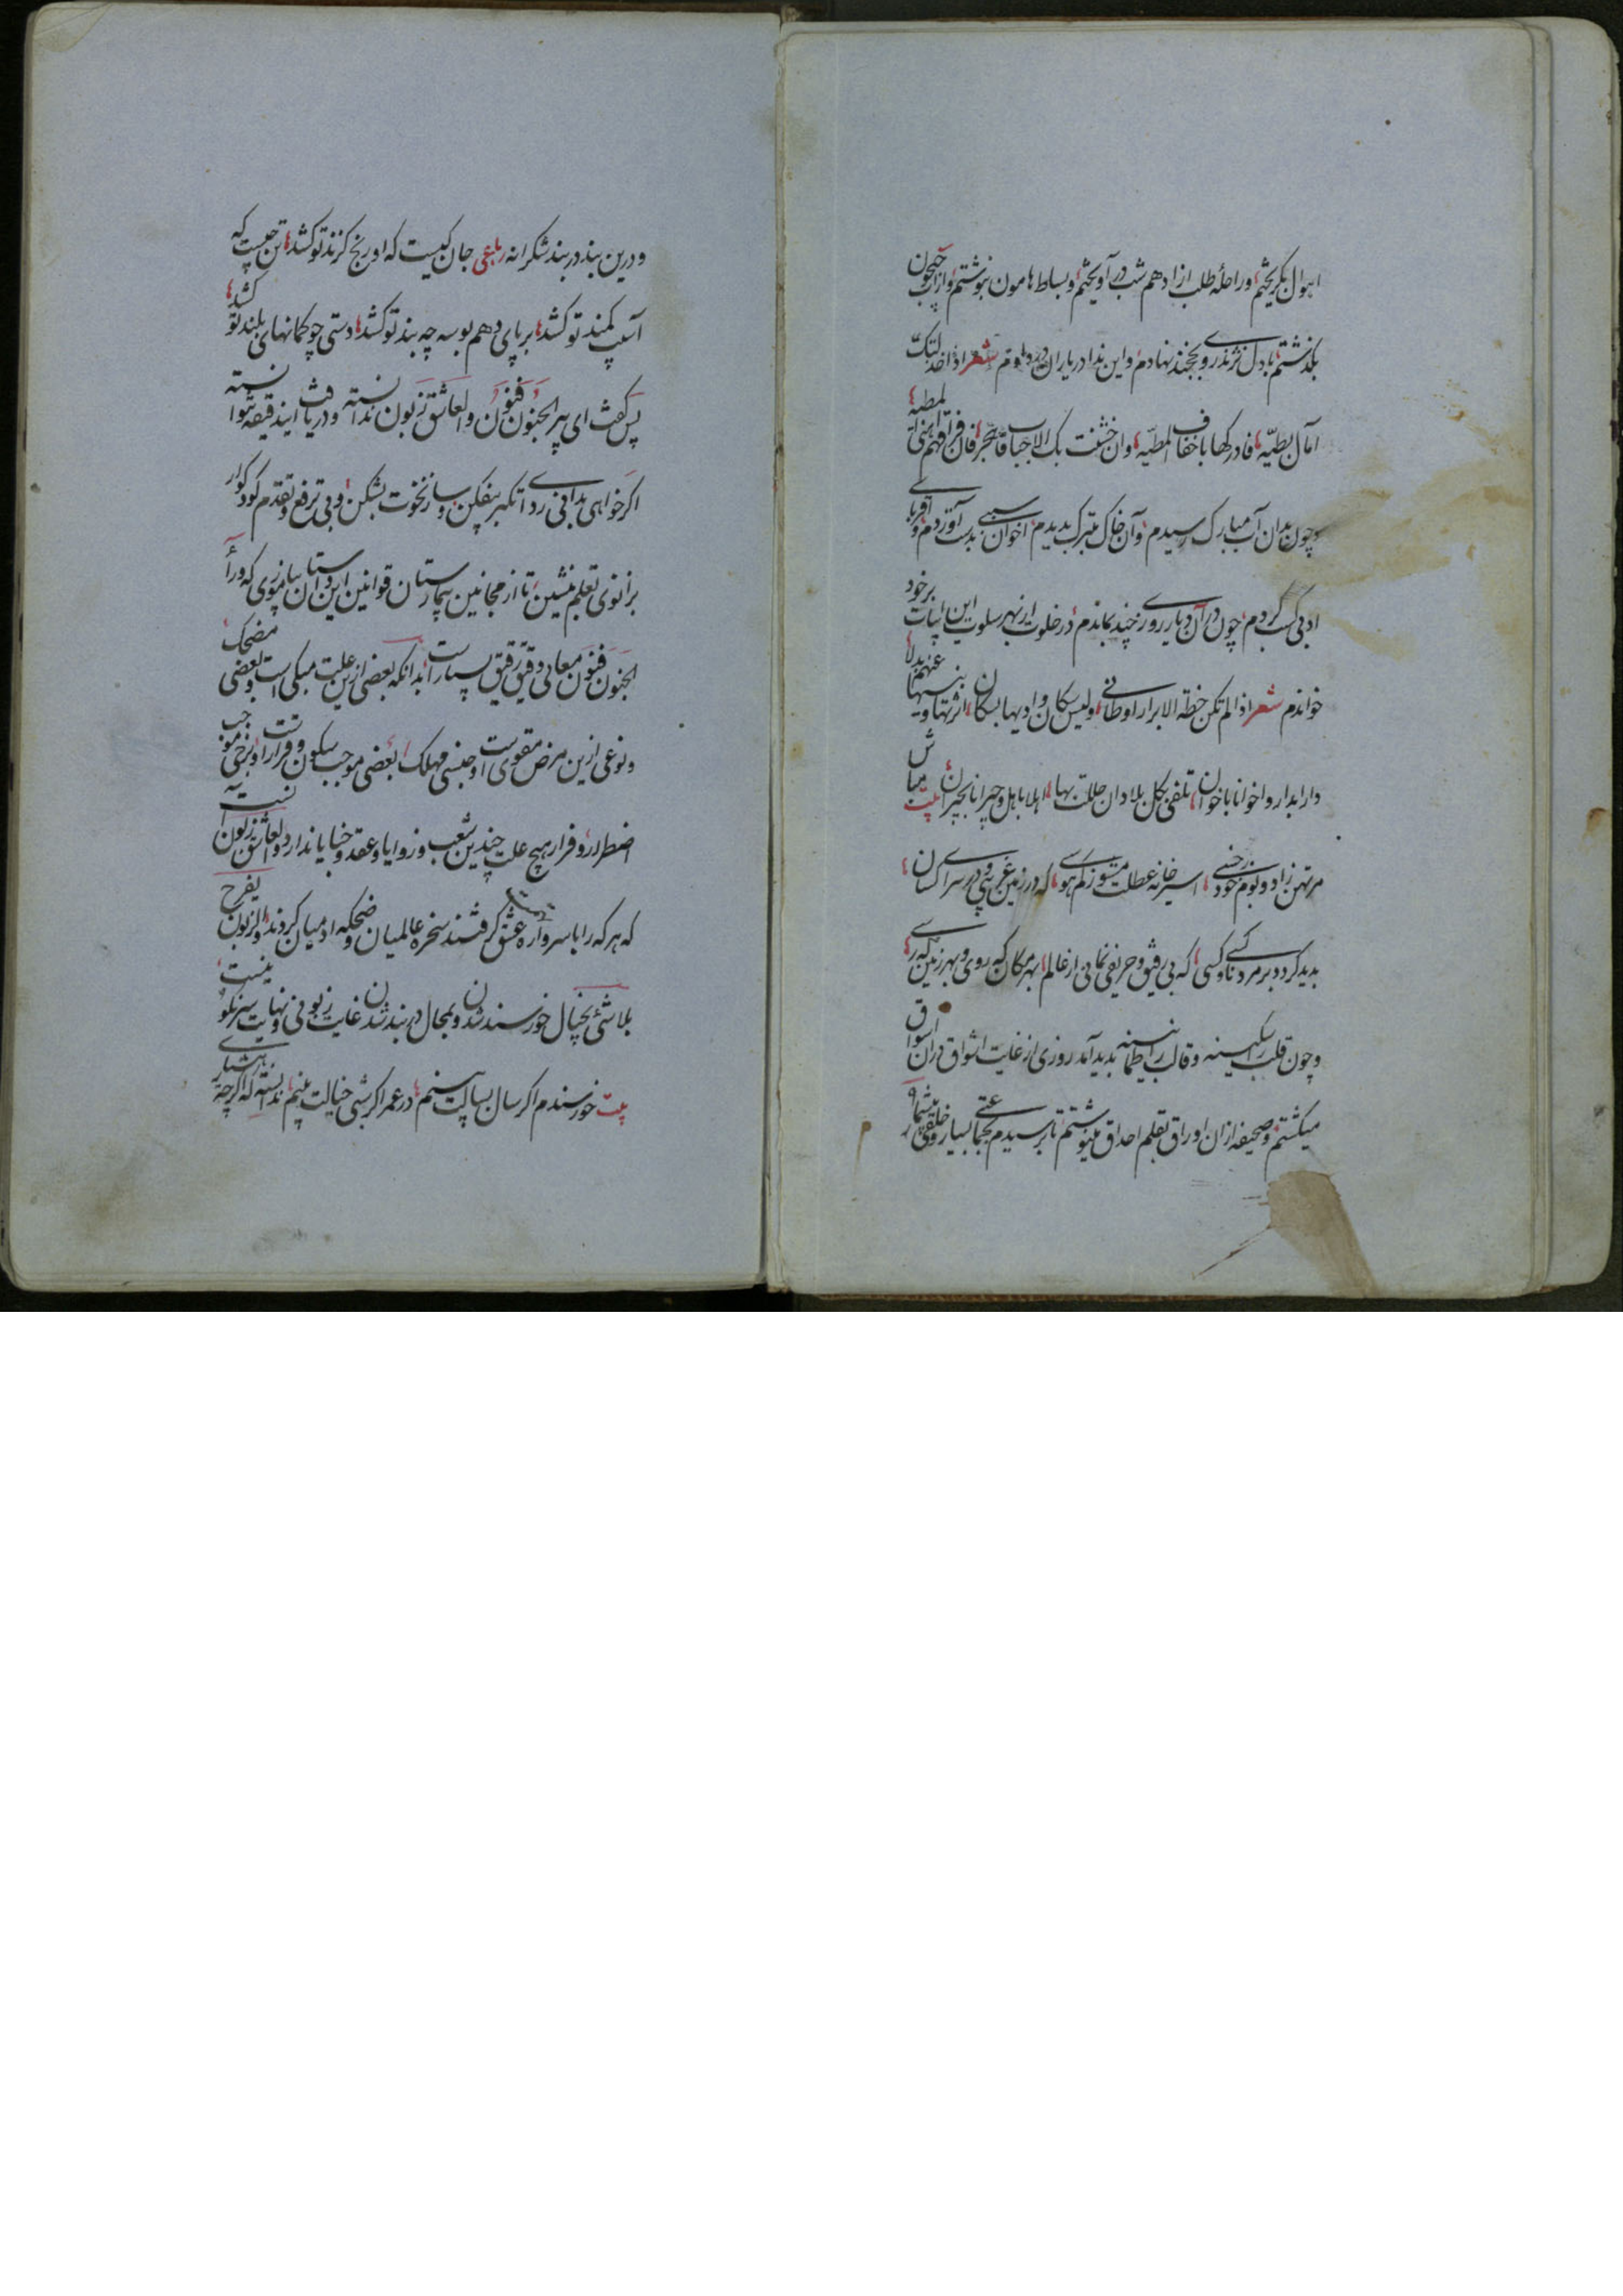 اهوال بگریختم، وراحلهٔ طلب از ادهم شب در آویختم و بساط هامون بنوشتم و از آب جیحون
بگذشتم با دل نژند روی بخجند نهادم و این ندا در یاران شعر اذا خذلتک
امال بطیّه، فادرکها باخفاف المطیّه، وان خشنت بک الاحباب فاهجر، فان فراقهم اهنی المطیه
و چون بدان آب مبارک رسیدم و آن خاک متبرک بدیدم اخوان سببی بدست آوردم و اقربای
ادبی کسب کردم چون در آن دیار روزی چند بماندم در خلوت از بهر سلوت این ابیات بر خود
خواندم شعر اذا لم تکن خطة الابرار اوطانی، ولیس سکان وادیها بسکان،
دارا بدار و اخوانا باخوان، تلقی بکل بلاد ان حللت بها، اهلا باهل و جیرانا بجیران، بیت مباش
مرتهن زاد و بوم خود ز خسی، اسیر خانه عطلت مشو ز کم هوسی، که در زمین غریبی و در سرای کسان،
بدید گردد بر مرد ناکسی و کسی، که بی رفیق و حریفی نمانی از عالم، بهر مکان که روی و بهر زمین که رسی،
و چون قلب را سکینه و قالب را طمانینه بدید آمد روزی از غایت اشواق در آن اسواق
میگشتم و صحیفه از آن اوراق بقلم احداق مینوشتم تا برسیدم بجماعتی بسیار و خلقی بیشمار
و درین بند در بند شکرانه رباعی جان کیست که او رنج گزند تو کشد، تن چیست که
آسیب کمند تو کشد، بر پای دهم بوسه چه بند تو کشد، دستی چو کمانهای بلند تو کشد،
پس گفت ای پیر الجنون فنون والعاشق زبون ندانسته و دریافت این دقیقه نتوانسته
اگر خواهی بدانی ردای تکبر بیفکن و ساز نخوت بشکن و بی ترفع و تقدم کودک وار
بزانوی تعلم بنشین تا از مجانین بیمارستان قوانین این داستان بیاموزی که ورای
الجنون فنون معانی دقیق رقیق بسیار است بدانکه بعضی ازین علت مبکی است و بعضی مضحک
و نوعی ازین مرض مقوی است و جنسی مهلک بعضی موجب سکون و قرار است و برخی موجب
اضطرار و فرار هیچ علت چندین شعب و زوایا و عقد و خبایا ندارد والعاشق زبون آنست
که هر که را با سر واره عشق گرفتند سخره عالمیان و ضحکه ادمیان کردند والزبون یفرح
بلاشئ بخیال خورسند شدن و بمجال در بند شدن غایت زبونی و نهایت سرنگونیست
بیت خورسندم اگر سال بسالت بینم، در عمر اگر شبی خیالت بینم، ندانسته که اگر چه بیشتاری